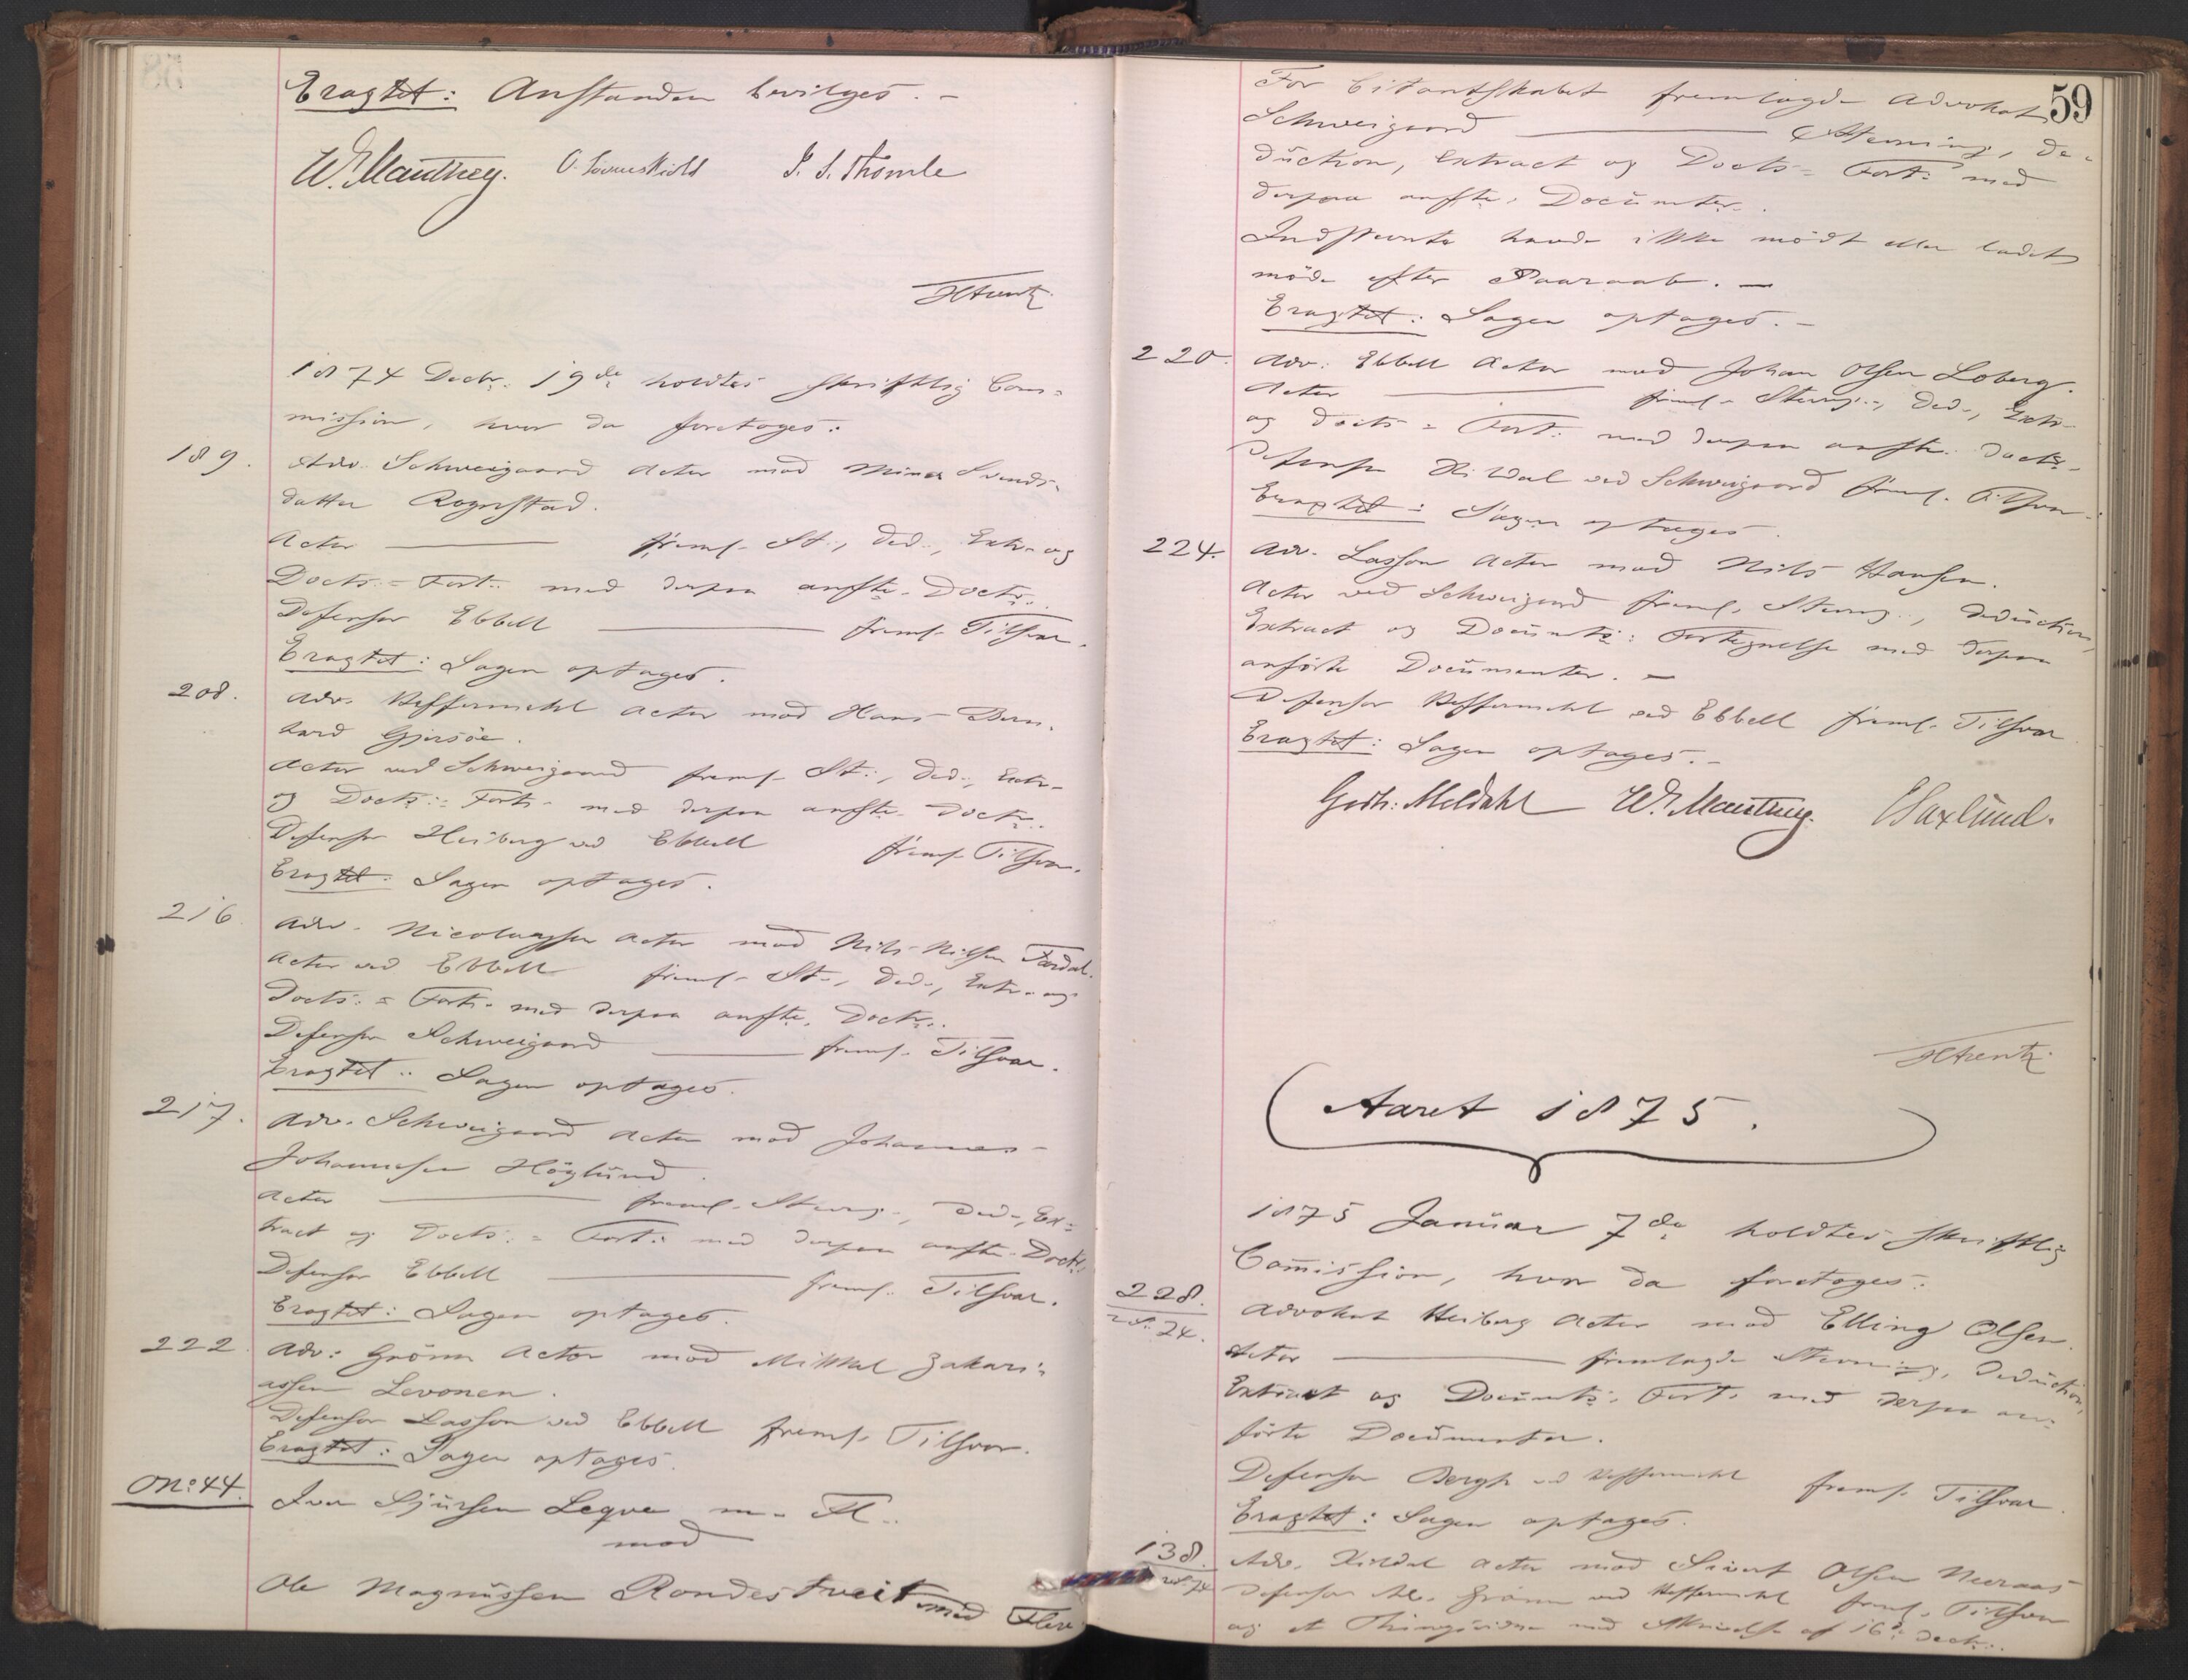 Eragtet: Anstanden bevilges. -
W. Manthey. O. Løvenskiold I. S. Thomle
1874 Decbr. 19de holdtes skriftlig Com=
mission, hvor da foretoges:
189. Adv. Schweigaard Actor mod Mina Svends=
datter Rognstad.
Actor ——— freml. St., Ded., Extr. og
Docts.= Fort. med derpaa anfte. Doctr.
Defensor Ebbell ——— freml. Tilsvar.
Eragtet: Sagen optages.
208. Adv. Heffermehl Actor mod Hans Bern=
hard Gjersöe.
Actor ved Schweigaard freml. St:, Ded:, Extr.
og Docts:= Fort. med derpaa anfte. Doctr.
Defensor Heiberg ved Ebbell freml. Tilsvar.
Eragtet: Sagen optages.
216. Adv. Nicolaysen Actor mod Nils Nilsen
Actor ved Ebbell freml. St., Ded., Extr. og
Docts:= Fort. med derpaa anfte. Doctr.
Defensor Schweigaard ——— freml. Tilsvar.
Eragtet: Sagen optages.
217. Adv. Schweigaard Actor mod Johannes
Johannesen Höglund.
Actor ——— freml. Stevng., Ded., Ex=
tract og Docts:= Fort: med derpaa anfte. Doctr.
Defensor Ebbell ——— freml. Tilsvar.
Eragtet: Sagen optages.
222 Adv: Grönn Actor mod Mikkel Zakari=
assen Levonen.
Defensor Lasson ved Ebbell freml. Tilsvar.
Eragtet: Sagen optages.
No: 44. Iver Sjursen Leqve m. Fl.
mod
Ole Magnussen Rondestveit med Flere
59
For Citantskabet fremlagde Advokat
Schweigaard ——— Stevning, De=
duction, Extract og Docts= Fort: med
derpaa anfte. Documter.
Indstevnte havde ikke mödt eller ladet
möde efter Paaraab. —
Eragtet: Sagen optages. -
220. Adv. Ebbell Actor mod Johan Olsen Loberg.
Actor ——— freml. Stevng., Ded., Extr.
og Docts= Fort: med derpaa anfte. Doctr.
Defensor Kildal ved Schweigaard freml. Tilsvar.
Eragtet: Sagen optages.
224. Adv. Lasson Actor mod Nils Hansen.
Actor ved Schweigaard freml. Stevng., Deduction,
Extract og Documts: Fortegnelse med derpaa
anförte Documenter. —
Defensor Heffermehl ved Ebbell freml. Tilsvar
Eragtet: Sagen optages. -
Godtf: Meldahl W. Manthey. Saxlund.
Aaret 1875.
1875 Januar 7de holdtes skriftlig
Commission, hvor da foretoges:
228. Advokat Heiberg Actor mod Elling Olsen.
Actor ——— fremlagde Stevning, Deduction,
Extract og Documts: Fort. med derpaa an=
förte Documenter.
Defensor Bergh ved Heffermehl freml. Tilsvar.
Eragtet: Sagen optages.
138. Adv. Kildal Actor mod Sivert Olsen
Defensor Grönn ved Heffermehl freml. Tilsvar
og et Thingsvidne med af 16de Dectr.